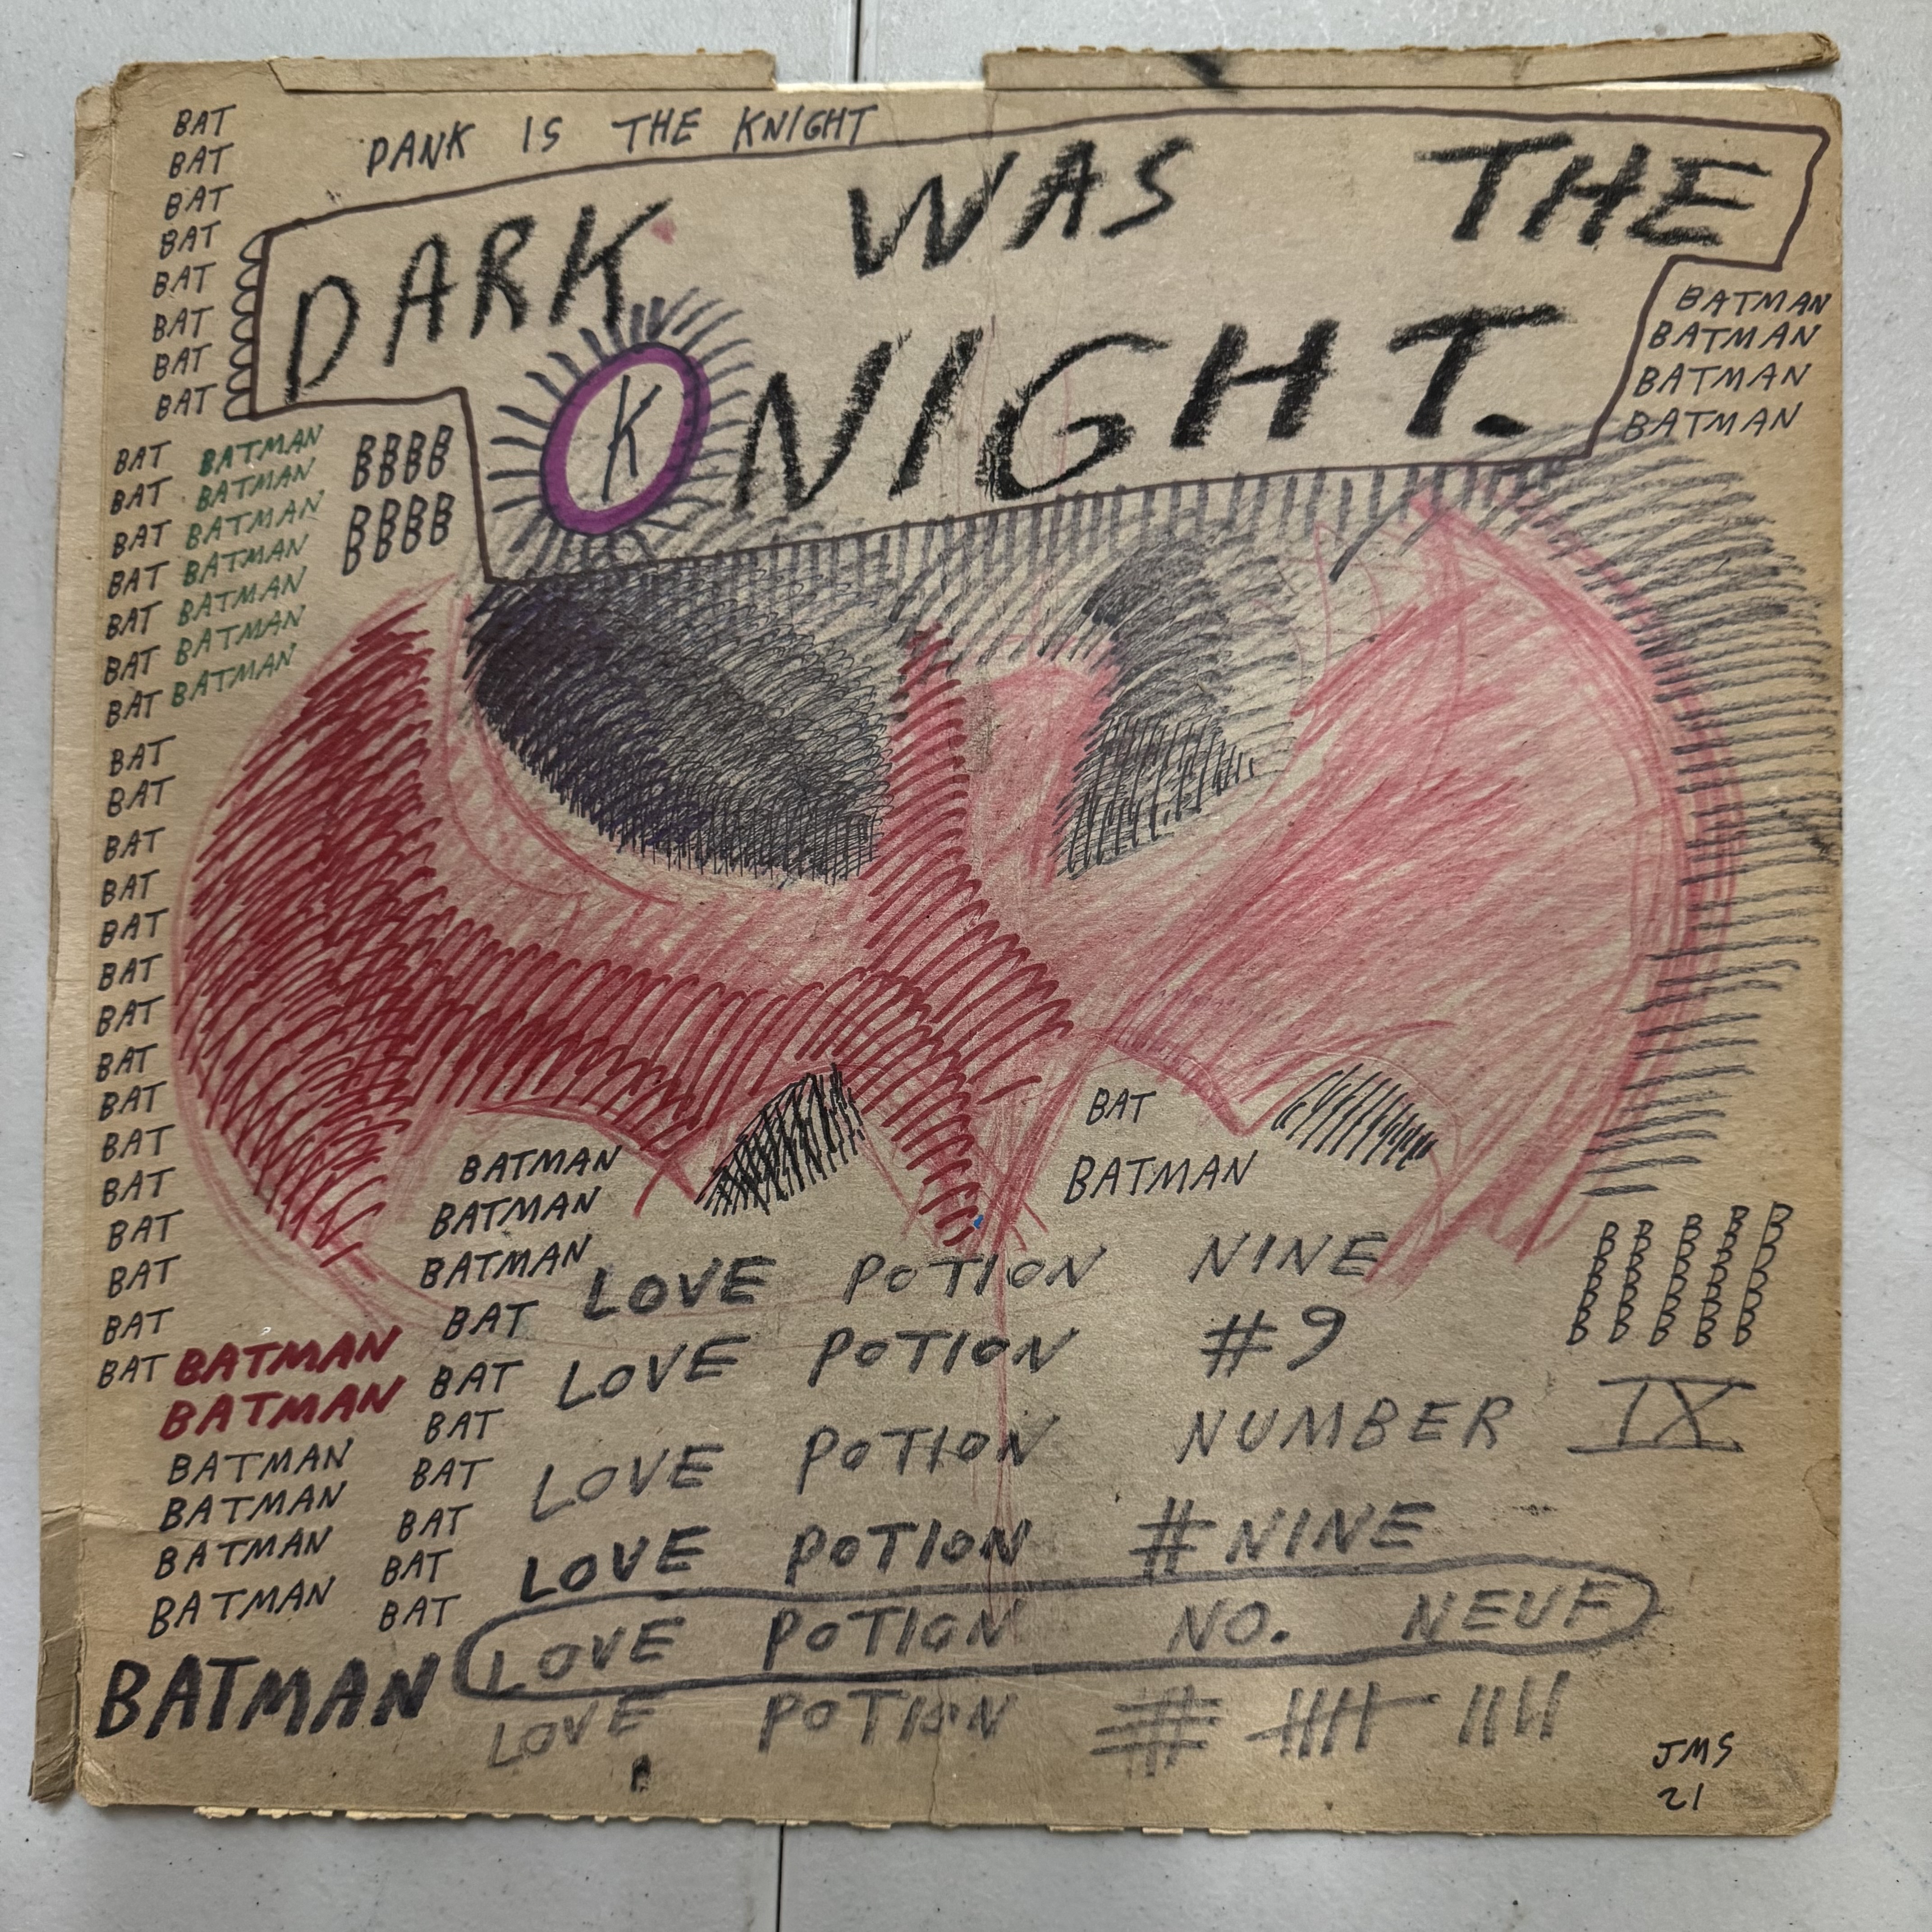 DANK IS THE KNIGHT
DARK WAS THE
KNIGHT.
BAT
BAT
BAT
BAT
BAT
BAT
BAT
BAT
BATMAN
BATMAN
BATMAN
BATMAN
BAT BATMAN
BAT BATMAN
BAT BATMAN
BAT BATMAN
BAT BATMAN
BAT BATMAN
BAT BATMAN
BBBB
BBBB
BAT
BAT
BAT
BAT
BAT
BAT
BAT
BAT
BAT
BAT
BAT
BAT
BAT
BAT
BAT
BAT
BATMAN
BATMAN
BATMAN
BATMAN
BAT
BAT
BAT
BAT
BAT
BAT
BAT
BATMAN
BATMAN
BATMAN
BATMAN
BATMAN
BATMAN
BATMAN
LOVE POTION NINE
LOVE POTION #9
LOVE POTION NUMBER IX
LOVE POTION #NINE
LOVE POTION NO. NEUF
LOVE POTION #
BBBBB
JMS
21